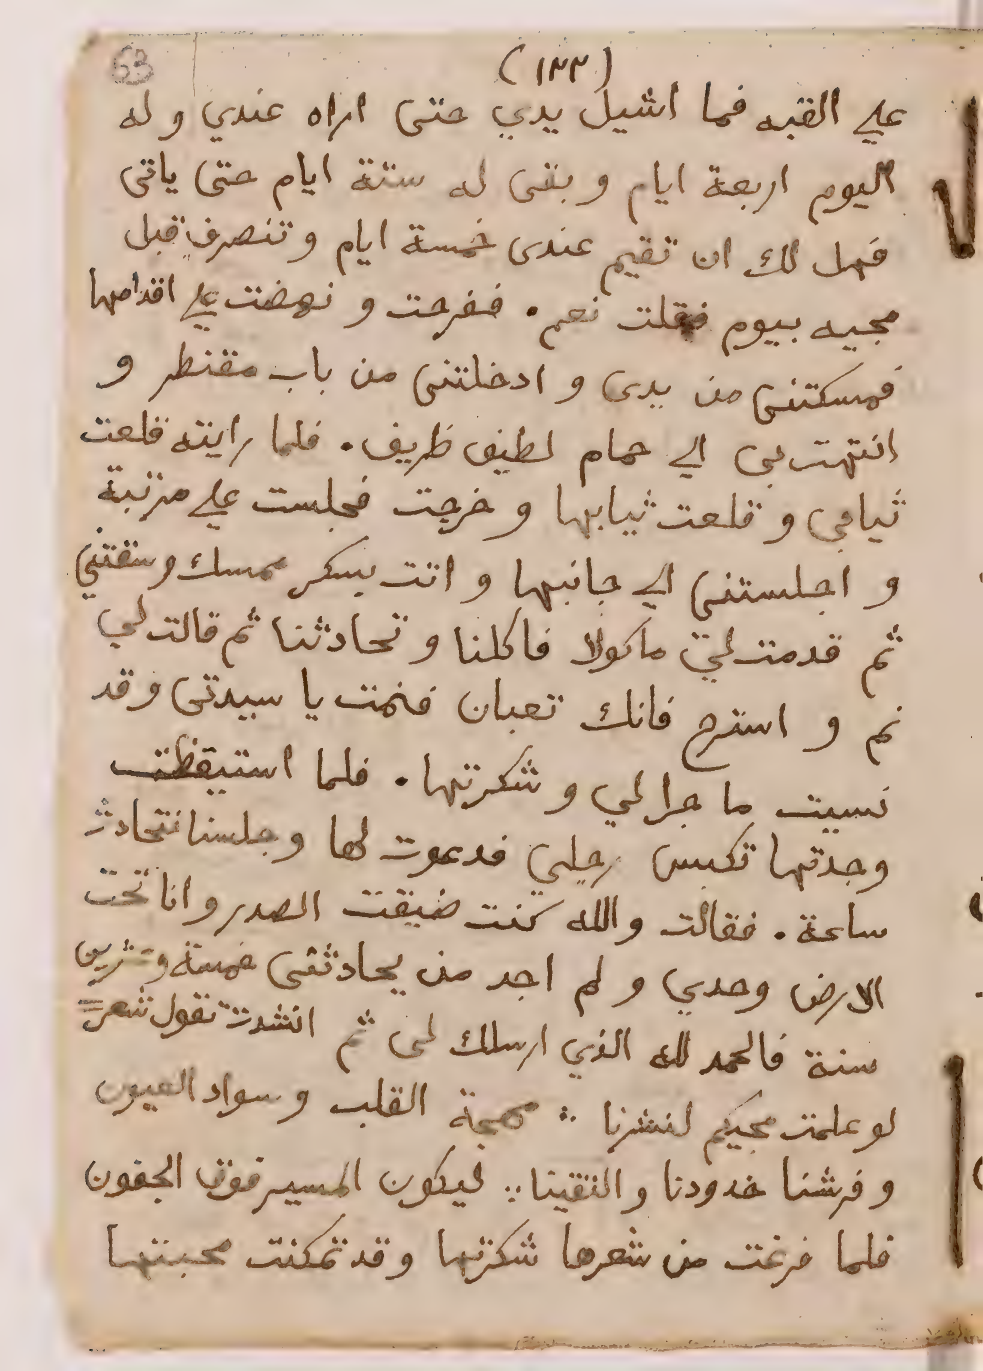 63
(١٣٣)
علي القبه فما اشيل يدي حتى اراه عندي و له
اليوم اربعة ايام و بقى له ستة ايام حتى ياتى
فهل لك ان تقيم عندى خمسة ايام و تنصرف قبل
مجيه بيوم فقلت نعم . ففرحت و نهضت علي اقدامها
فمسكتنى من يدى و ادخلتنى من باب مقنطر و
انتهت بى الي حمام لطيف ظريف . فلما رايته قلعت
ثيابي و قلعت ثيابها و خرجت فجلست علي مرتبة
و اجلستنى الي جانبها و اتت بسكر ممسك و سقتني
ثم قدمت لي ماكولا فاكلنا و تحادثنا ثم قالت لي
نم و استرح فانك تعبان فنمت يا سيدتى و قد
نسيت ما جرا لي و شكرتها . فلما استيقظت
وجدتها تكبس رجلي فدعوت لها و جلسنا نتحادث
ساعة . فقالت والله كنت ضيقت الصدر و انا تحت
الارض وحدي و لم اجد من يحادثنى خمسة و عشرين
سنة فالحمد لله الذي ارسلك لى ثم انشدت تقول شعر =
لو علمت مجيكم لنشرنا ∴ مهجة القلب و سواد العيون
و فرشنا خدودنا و التقينا ∴ ليكون المسير فوق الجفون
فلما فرغت من شعرها شكرتها و قد تمكنت محبتها